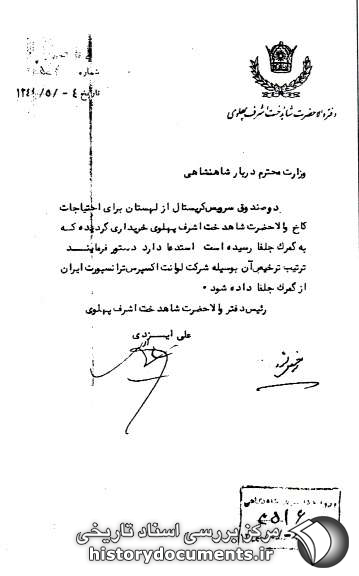 دفتر والاحضرت شاهدخت اشرف پهلوی
شماره
تاریخ ٤ -/٥/- ١٣٤٩
وزارت محترم دربار شاهنشاهی
دو صندوق سرویس کریستال از لهستان برای احتیاجات
کاخ والاحضرت شاهدخت اشرف پهلوی خریداری گردیده که
به گمرک جلفا رسیده است استدعا دارد دستور فرمایند
ترتیب ترخیص آن بوسیله شرکت لوانت اکسپرس ترانسپورت ایران
از گمرک جلفا داده شود ۰
رئیس دفتر والاحضرت شاهدخت اشرف پهلوی
علی ایزدی
مرکز بررسی اسناد تاریخی
historydocuments.ir